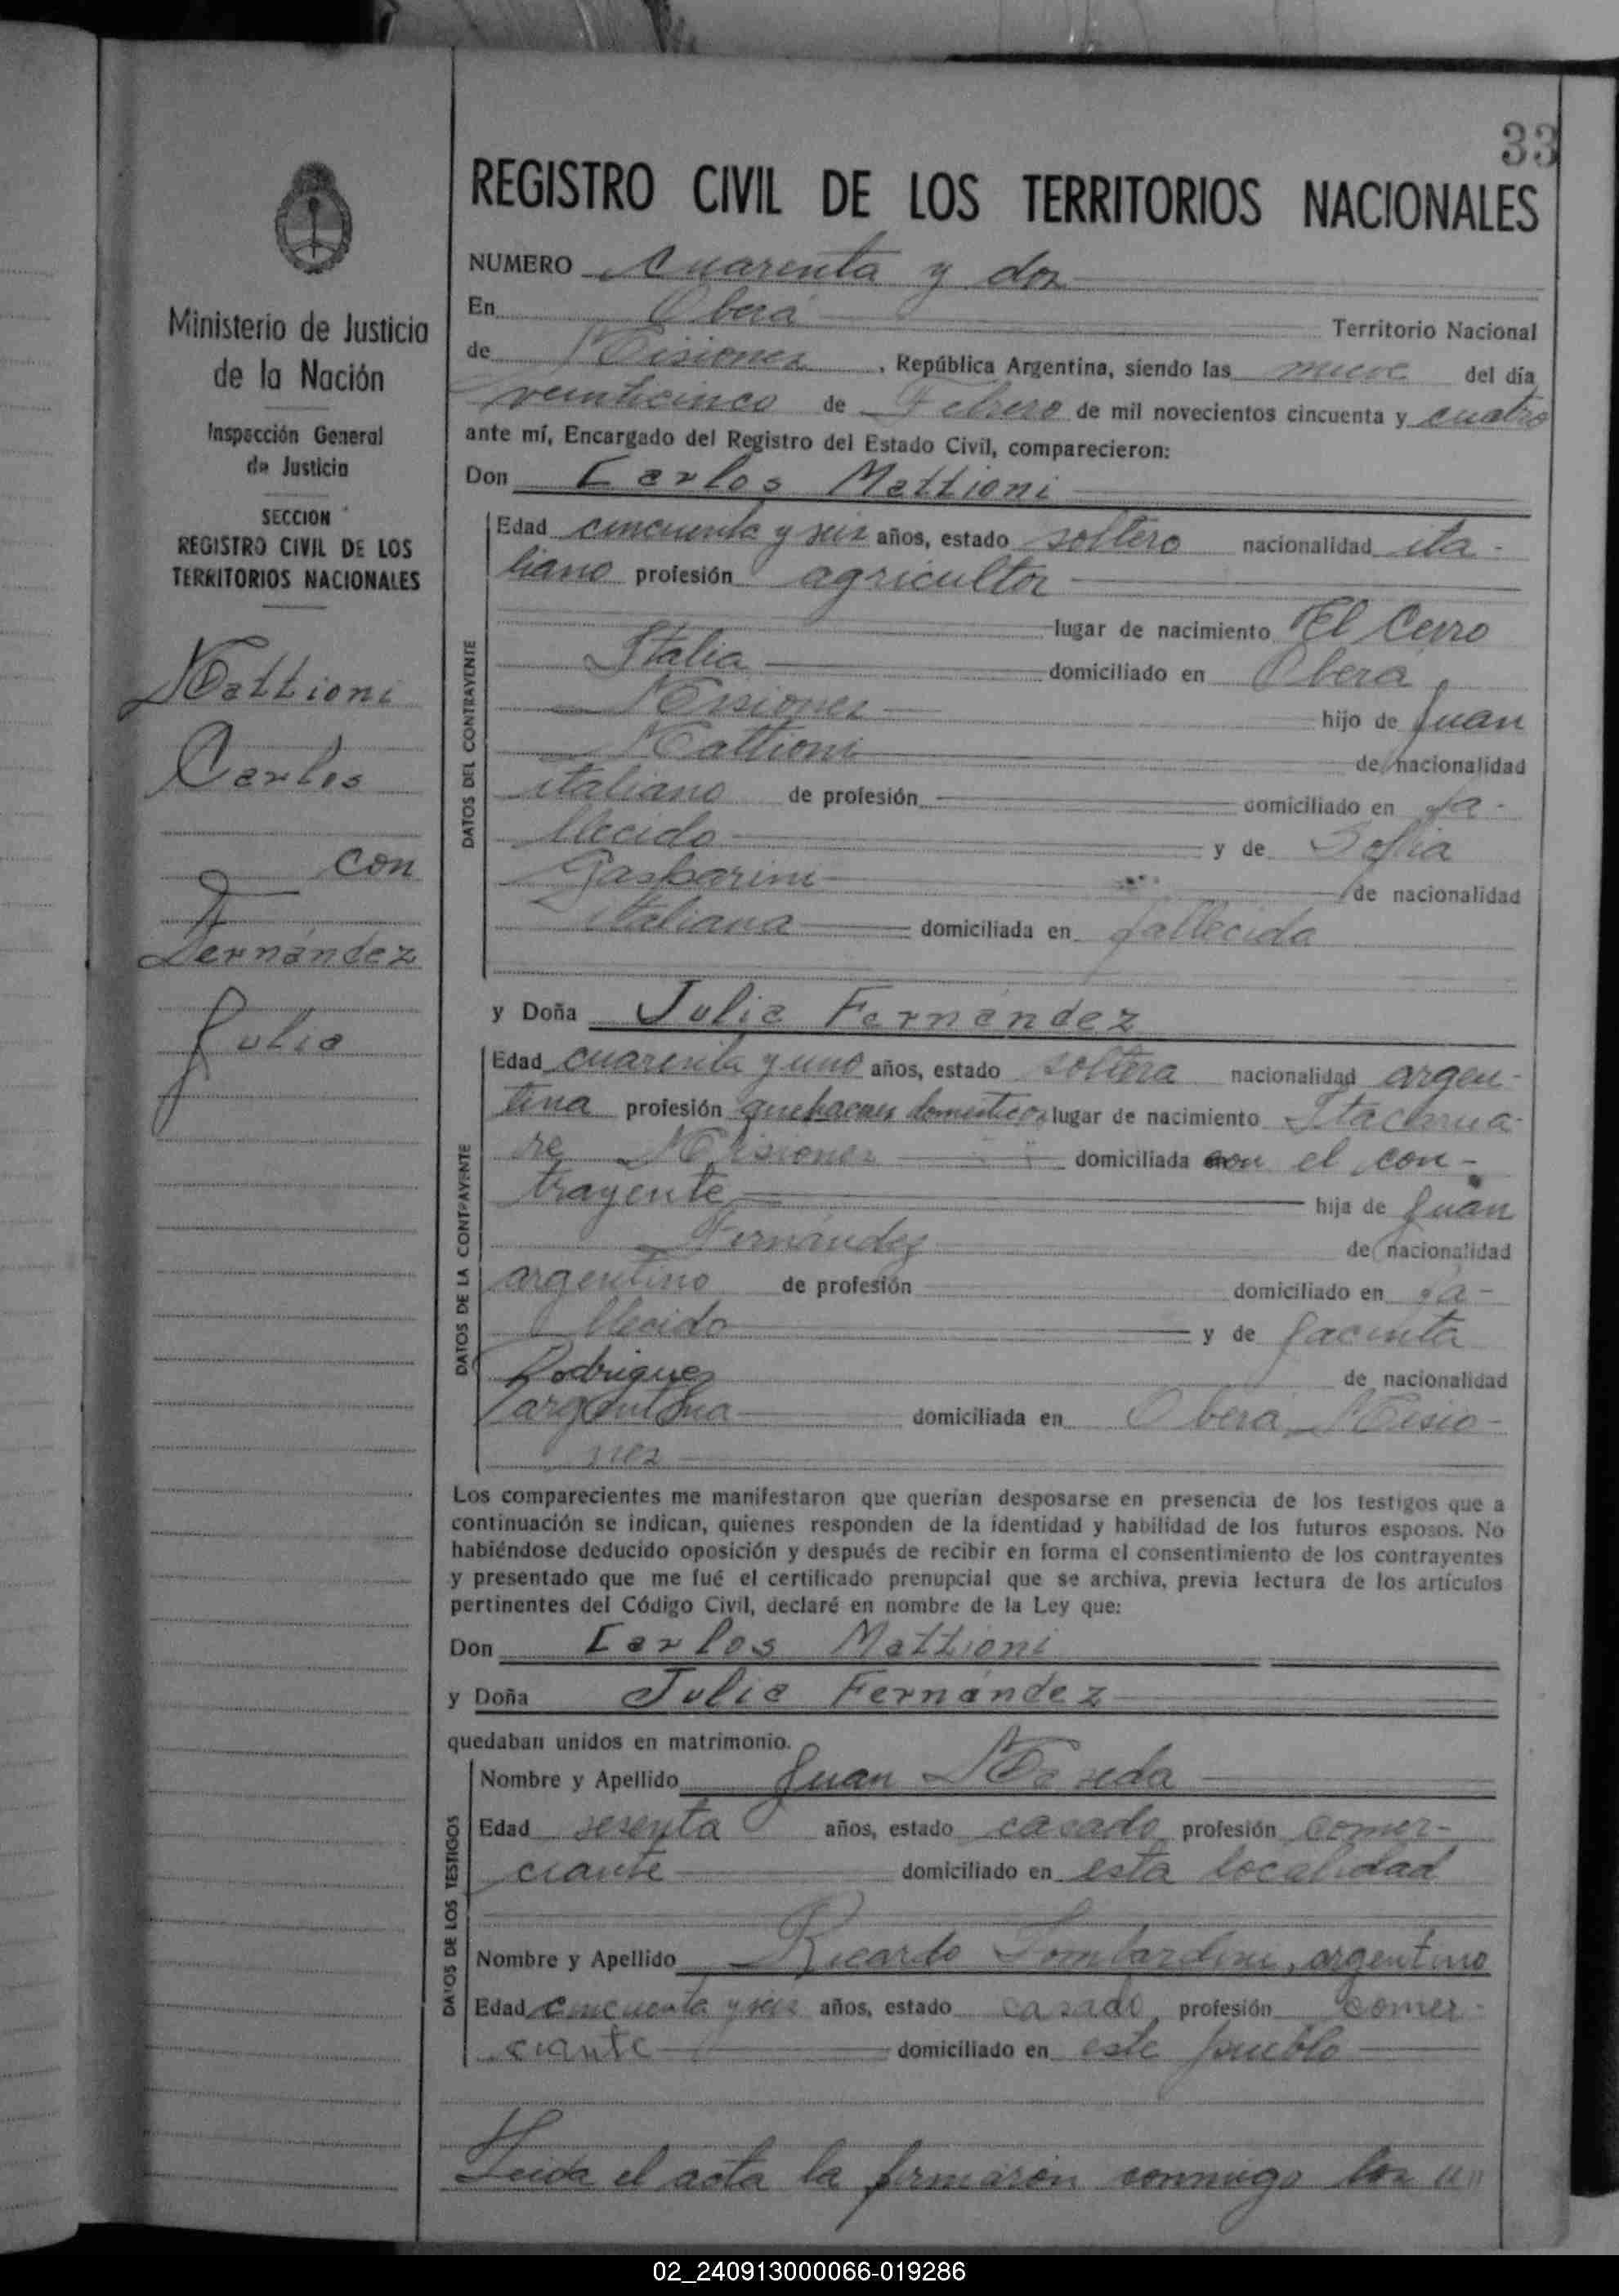 33
REGISTRO CIVIL DE LOS TERRITORIOS NACIONALES
Ministerio de Justicia
de la Nación
Inspección General
de Justicia
SECCION
REGISTRO CIVIL DE LOS
TERRITORIOS NACIONALES
Mattioni
Carlos
con
Fernández
Julia
NUMERO cuarenta y dos
En Oberá Territorio Nacional
de Misiones, República Argentina, siendo las nueve del día
veinticinco de Febrero de mil novecientos cincuenta y cuatro
ante mí, Encargado del Registro del Estado Civil, comparecieron:
Don Carlos Mattioni
DATOS DEL CONTRAYENTE
Edad cincuenta y seis años, estado soltero nacionalidad ita-
liano profesión agricultor
lugar de nacimiento El Cerro
Italia domiciliado en Oberá
Misiones hijo de Juan
Mattioni de nacionalidad
italiano de profesión domiciliado en fa-
llecido y de Sofia
Gasparini de nacionalidad
italiana domiciliada en fallecida
y Doña Julia Fernández
DATOS DE LA CONTRAYENTE
Edad cuarenta y uno años, estado soltera nacionalidad argen-
tina profesión quehaceres domesticos lugar de nacimiento Itacarua-
re Misiones domiciliada con el con-
trayente hija de Juan
Fernández de nacionalidad
argentino de profesión domiciliado en fa-
llecido y de Jacinta
Rodriguez de nacionalidad
argentina domiciliada en Oberá Misio-
nes
Los comparecientes me manifestaron que querían desposarse en presencia de los testigos que a
continuación se indican, quienes responden de la identidad y habilidad de los futuros esposos. No
habiéndose deducido oposición y después de recibir en forma el consentimiento de los contrayentes
y presentado que me fué el certificado prenupcial que se archiva, previa lectura de los artículos
pertinentes del Código Civil, declaré en nombre de la Ley que:
Don Carlos Mattioni
y Doña Julia Fernández
quedaban unidos en matrimonio.
DATOS DE LOS TESTIGOS
Nombre y Apellido Juan
Edad sesenta años, estado casado profesión comer-
ciante domiciliado en esta localidad
Nombre y Apellido Ricardo Lombardini, argentino
Edad cincuenta y seis años, estado casado profesión comer-
ciante domiciliado en este pueblo
Leida el acta la firmaron conmigo los
02_240913000066-019286